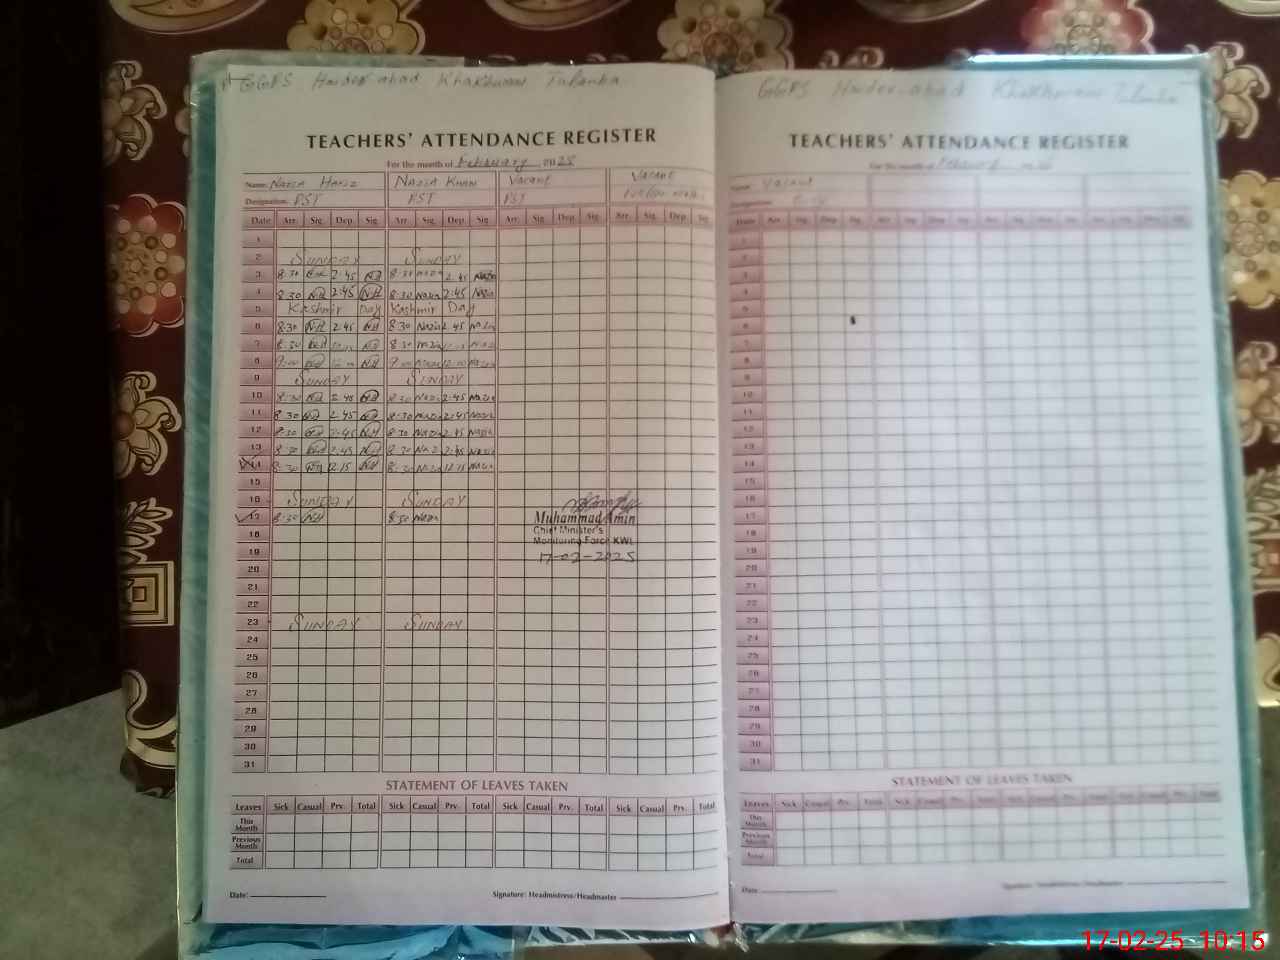 GGPS Haider abad Khakhwani Tulamba
TEACHERS' ATTENDANCE REGISTER
For the month of February 2025
Name: Nazia Hafiz Nazia Khan Vacant Vacant
Designation: PST PST PST
Date Arr. Sig. Dep. Sig. Arr. Sig. Dep. Sig Arr. Sig Dep. Sig Arr. Sig. Dep. Sig
1
2 SUNDAY SUNDAY
3 8:30 2:45 8:30 Nazia 2:45 Nazia
4 8:30 NH 2:45 NH 8:30 Nazia 2:45 Nazia
5 Kashmir Day Kashmir Day
6 8:30 NH 2:45 NH 8:30 Nazia 2:45 Nazia
7 8:30 8:30 Nazia
8 9:00 NH 9:00 Nazia 12:00 Nazia
9 SUNDAY SUNDAY
10 8:30 NH 2:45 NH 8:30 Nazia 2:45 Nazia
11 8:30 NH 2:45 NH 8:30 Nazia 2:45 Nazia
12 8:30 NH 2:45 NH 8:30 Nazia 2:45 Nazia
13 8:30 NH 2:45 NH 8:30 Nazia 2:45 Nazia
14 8:30 NH 12:15 NH 8:30 Nazia 12:15 Nazia
15
16 SUNDAY SUNDAY
17 8:30 NH 8:30 Nazia
Muhammad Amin
Chief Minister's
Monitoring Force KWL
17-02-2025
18
19
20
21
22
23 SUNDAY SUNDAY
24
25
26
27
28
29
30
31
STATEMENT OF LEAVES TAKEN
Leaves Sick Casual Prv. Total Sick Casual Prv. Total Sick Casual Prv. Total Sick Casual Prv. Total
This Month
Previous Month
Total
Date: Signature: Headmistress/Headmaster
GGPS Haider abad Khakhwani Tulamba
TEACHERS' ATTENDANCE REGISTER
For the month of February
Name: Vacant
Designation:
Date Arr. Sig. Dep. Sig. Arr. Sig. Dep. Sig. Arr. Sig. Dep. Sig. Arr. Sig. Dep. Sig.
1
2
3
4
5
6
7
8
9
10
11
12
13
14
15
16
17
18
19
20
21
22
23
24
25
26
27
28
29
30
31
STATEMENT OF LEAVES TAKEN
Leaves Sick Casual Prv. Total Sick Casual Prv. Total
This Month
Previous Month
Total
Date: Signature: Headmistress/Headmaster
17-02-25 10:15